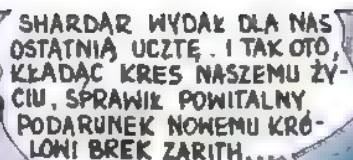 SHARDAR WYDAŁ DLA NAS
OSTATNIĄ UCZTĘ. I TAK OTO,
KŁADĄC KRES NASZEMU ŻY-
CIU, SPRAWIŁ POWITALNY
PODARUNEK NOWEMU KRÓ-
LOWI BREK ZARITH...